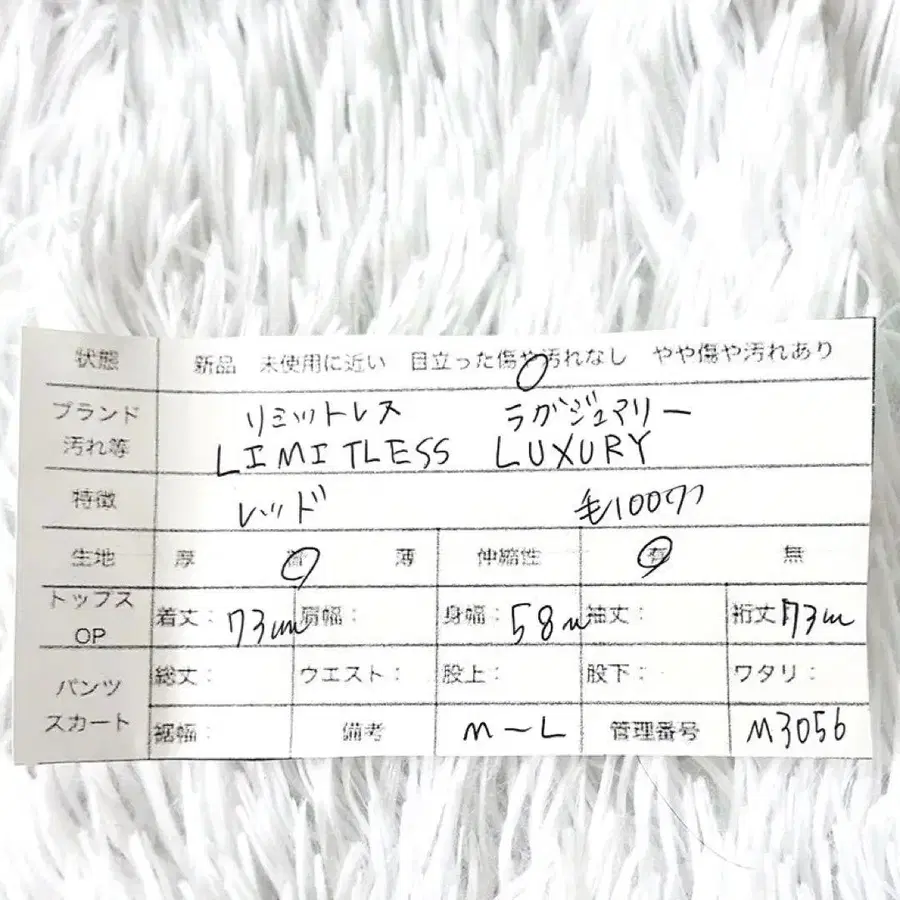 状態 新品 未使用に近い 目立った傷や汚れなし やや傷や汚れあり
ブランド リミットレス ラグジュアリー
汚れ等 LIMITLESS LUXURY
特徴 レッド 毛100%
生地 厚 普 薄 伸縮性 有 無
トップス 着丈: 73cm 肩幅: 身幅: 58cm 袖丈: 裄丈 73cm
OP
パンツ 総丈: ウエスト: 股上: 股下: ワタリ:
スカート 裾幅: 備考 M〜L 管理番号 M3056